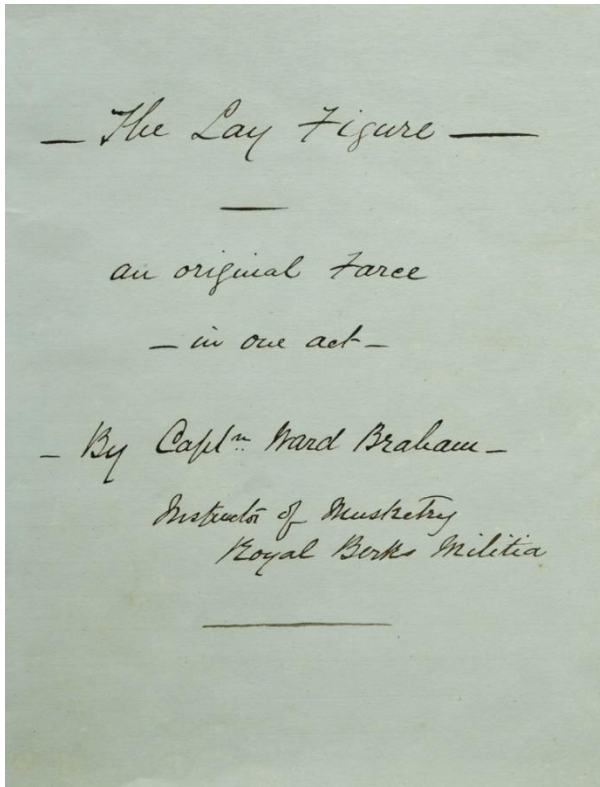 — The Lay Figure —
an original Farce
— in one act —
— By Captn. Ward Braham —
Instructor of Musketry
Royal Berks Militia